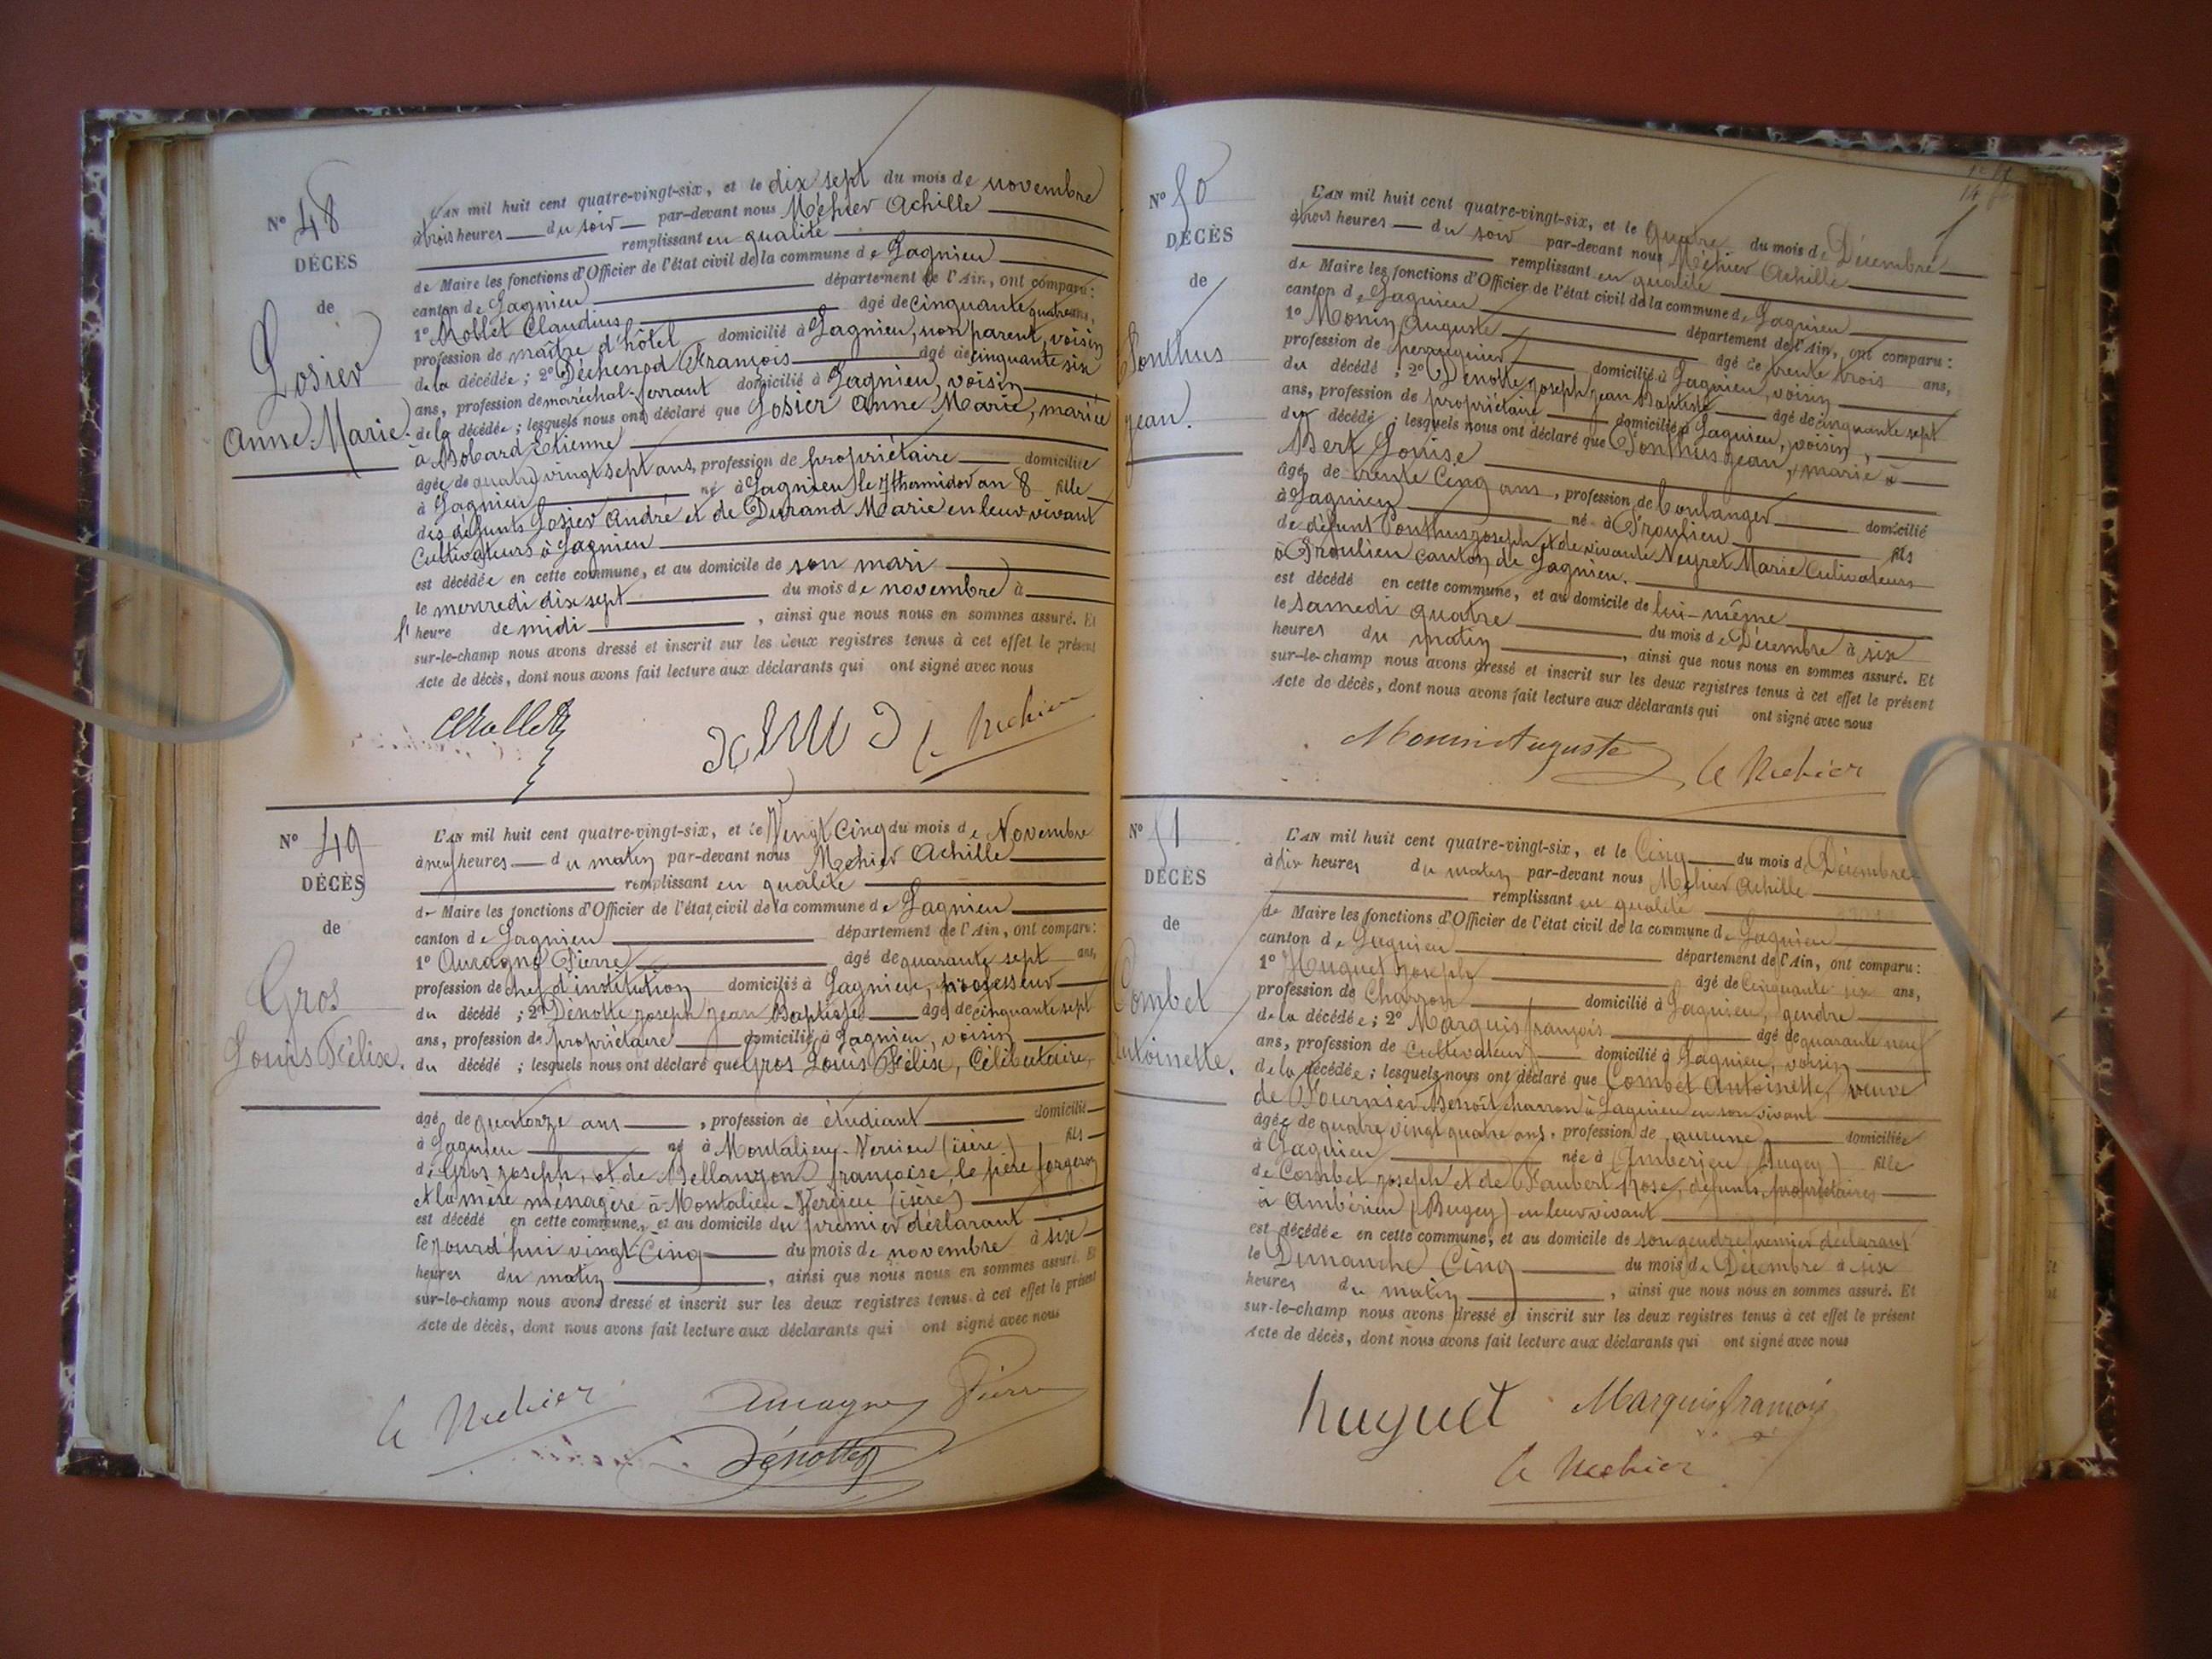 N° 48
DÉCÈS
de
Losier
Anne Marie.
L'AN mil huit cent quatre-vingt-six, et le dix sept du mois de novembre
à trois heures du soir par-devant nous Méhier Achille
remplissant en qualité
de Maire les fonctions d'Officier de l'état civil de la commune de Lagnieu
canton de Lagnieu département de l'Ain, ont comparu:
1° Mollet Claudius âgé de cinquante quatre ans,
profession de maître d'hôtel domicilié à Lagnieu, non parent, voisin
de la décédée; 2° Déchenod François âgé de cinquante six
ans, profession de maréchal-ferrant domicilié à Lagnieu, voisin
de la décédée; lesquels nous ont déclaré que Losier Anne Marie, mariée
à Etienne
âgée de quatre vingt sept ans, profession de propriétaire domiciliée
à Lagnieu né à Lagnieu le 7 thermidor an 8 fille
des défunts Losier André et de Durand Marie en leur vivant
Cultivateurs à Lagnieu
est décédée en cette commune, et au domicile de son mari
le mercredi dix sept du mois de novembre à
heure de midi, ainsi que nous nous en sommes assuré. Et
sur-le-champ nous avons dressé et inscrit sur les deux registres tenus à cet effet le présent
Acte de décès, dont nous avons fait lecture aux déclarants qui ont signé avec nous
Mollet
Méhier
N° 49
DÉCÈS
de
Gros
Louis Félix.
L'AN mil huit cent quatre-vingt-six, et le Vingt Cinq du mois de Novembre
à neuf heures du matin par-devant nous Méhier Achille
remplissant en qualité
de Maire les fonctions d'Officier de l'état civil de la commune de Lagnieu
canton de Lagnieu département de l'Ain, ont comparu:
1° Auragne Pierre âgé de quarante sept ans,
profession de chef d'institution domicilié à Lagnieu, professeur
du décédé; 2° Dénotte Joseph Jean Baptiste âgé de cinquante sept
ans, profession de propriétaire domicilié à Lagnieu, voisin
du décédé; lesquels nous ont déclaré que Gros Louis Félix, Célibataire,
âgé de quatorze ans, profession de étudiant domicilié
à Lagnieu né à Montalieu-Vercieu (isère) fils
de Gros Joseph, et de Bellanzon françoise, le père forgeron
et la mère ménagère à Montalieu-Vercieu (isère)
est décédé en cette commune, et au domicile du premier déclarant
le jourd'hui vingt-Cinq du mois de novembre à six
heures du matin, ainsi que nous nous en sommes assuré. Et
sur-le-champ nous avons dressé et inscrit sur les deux registres tenus à cet effet le présent
Acte de décès, dont nous avons fait lecture aux déclarants qui ont signé avec nous
Méhier
Auragne Pierre
Dénotte
N° 50
DÉCÈS
de
Ponthus
Jean.
L'AN mil huit cent quatre-vingt-six, et le Quatre du mois de Décembre
à trois heures du soir par-devant nous Méhier Achille
remplissant en qualité
de Maire les fonctions d'Officier de l'état civil de la commune de Lagnieu
canton de Lagnieu département de l'Ain, ont comparu:
1° Monin Auguste âgé de trente trois ans,
profession de perruquier domicilié à Lagnieu, voisin
du décédé; 2° Dénotte Joseph Jean Baptiste âgé de cinquante sept
ans, profession de propriétaire domicilié à Lagnieu, voisin,
du décédé; lesquels nous ont déclaré que Ponthus Jean, marié à
Bert Louise
âgé de trente Cinq ans, profession de boulanger domicilié
à Lagnieu né à Proulieu fils
de défunt Ponthus Joseph et de vivante Neyret Marie Cultivateurs
à Proulieu canton de Lagnieu.
est décédé en cette commune, et au domicile de lui-même
le samedi quatre du mois de Décembre à six
heures du matin, ainsi que nous nous en sommes assuré. Et
sur-le-champ nous avons dressé et inscrit sur les deux registres tenus à cet effet le présent
Acte de décès, dont nous avons fait lecture aux déclarants qui ont signé avec nous
Monin Auguste
Méhier
N° 51
DÉCÈS
de
Combet
Antoinette.
L'AN mil huit cent quatre-vingt-six, et le Cinq du mois de Décembre
à dix heures du matin par-devant nous Méhier Achille
remplissant en qualité
de Maire les fonctions d'Officier de l'état civil de la commune de Lagnieu
canton de Lagnieu département de l'Ain, ont comparu:
1° Huguet Joseph âgé de Cinquante six ans,
profession de Charron domicilié à Lagnieu, gendre
de la décédée; 2° Marquis françois âgé de quarante neuf
ans, profession de Cultivateur domicilié à Lagnieu, voisin
de la décédée; lesquels nous ont déclaré que Combet Antoinette, veuve
de Fournier Benoît charron à Lagnieu en son vivant
âgée de quatre vingt quatre ans, profession de aucune domiciliée
à Lagnieu née à Ambérieu (Bugey) fille
de Combet Joseph et de Faubert Rose, défunts, propriétaires
à Ambérieu (Bugey) en leur vivant
est décédée en cette commune, et au domicile de son gendre premier déclarant
le Dimanche Cinq du mois de Décembre à six
heures du matin, ainsi que nous nous en sommes assuré. Et
sur-le-champ nous avons dressé et inscrit sur les deux registres tenus à cet effet le présent
Acte de décès, dont nous avons fait lecture aux déclarants qui ont signé avec nous
huguet
Marquis françois
Méhier